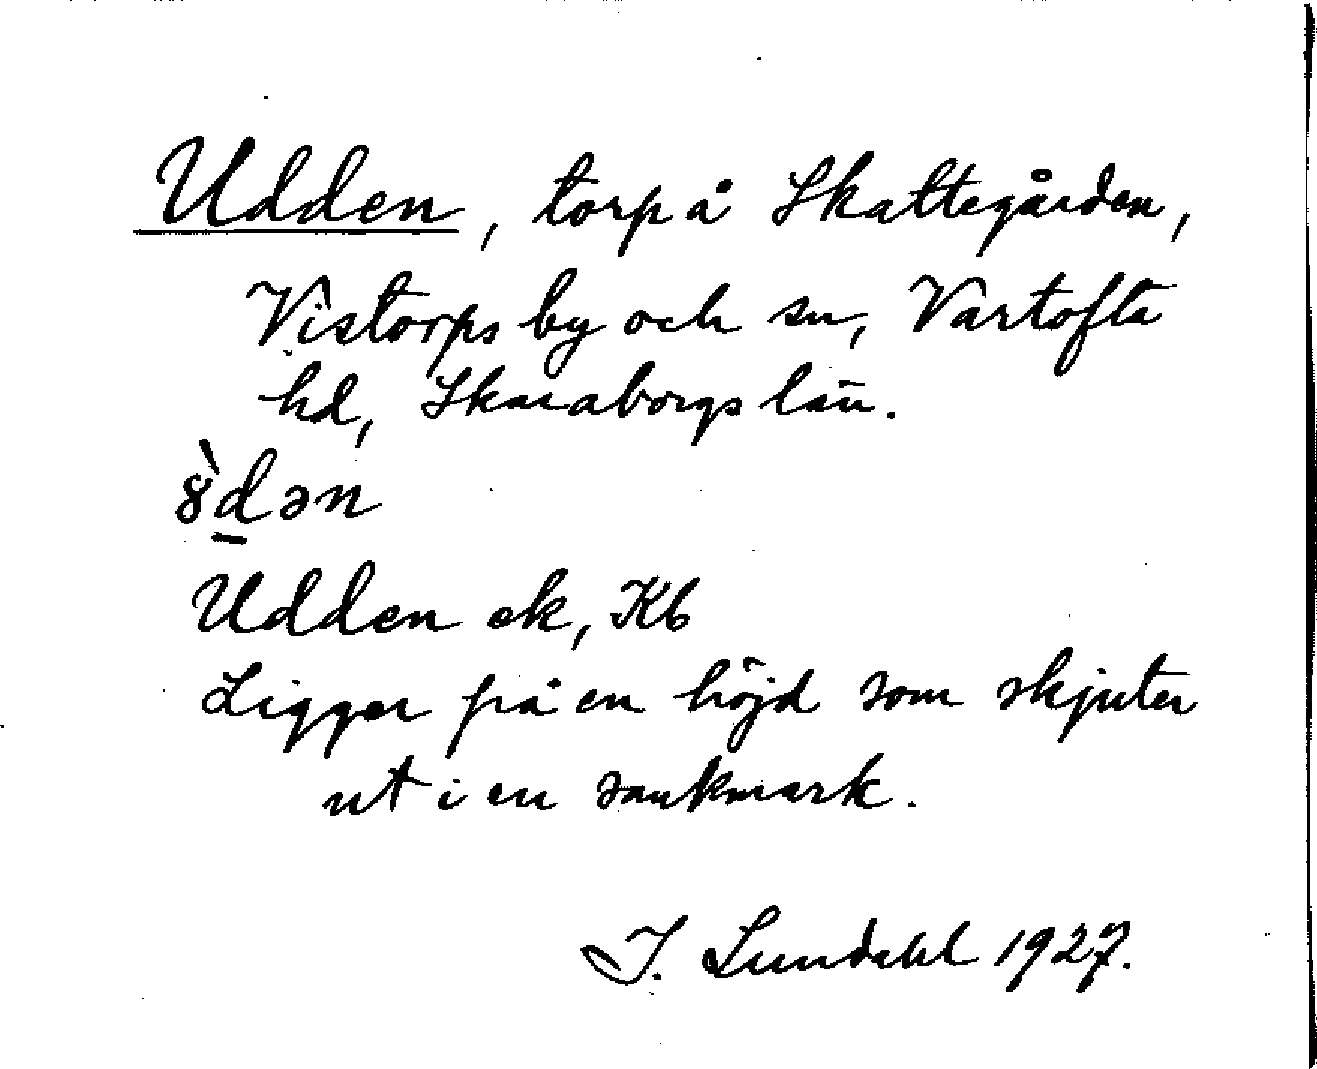 Udden, torp å Skattegården,
Vistorps by och sn, Vartofta
hd, Skaraborgs län.
ȣ̀d̲ən
Udden ek, Kb
Ligger på en höjd som skjuter
ut i en sankmark.
I. Lundahl 1927.